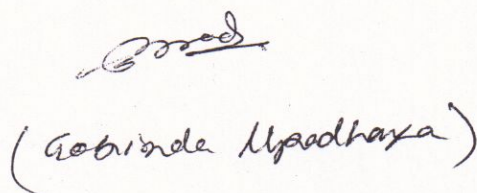 (Gobinda Upadhaya)